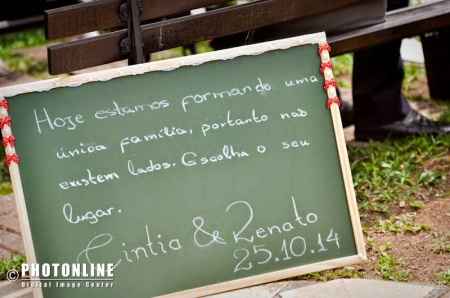 Hoje estamos formando uma
única família, portanto não
existem lados. Escolha o seu
lugar.
Cintia & Renato
25.10.14
© PHOTONLINE
Digital Image Center